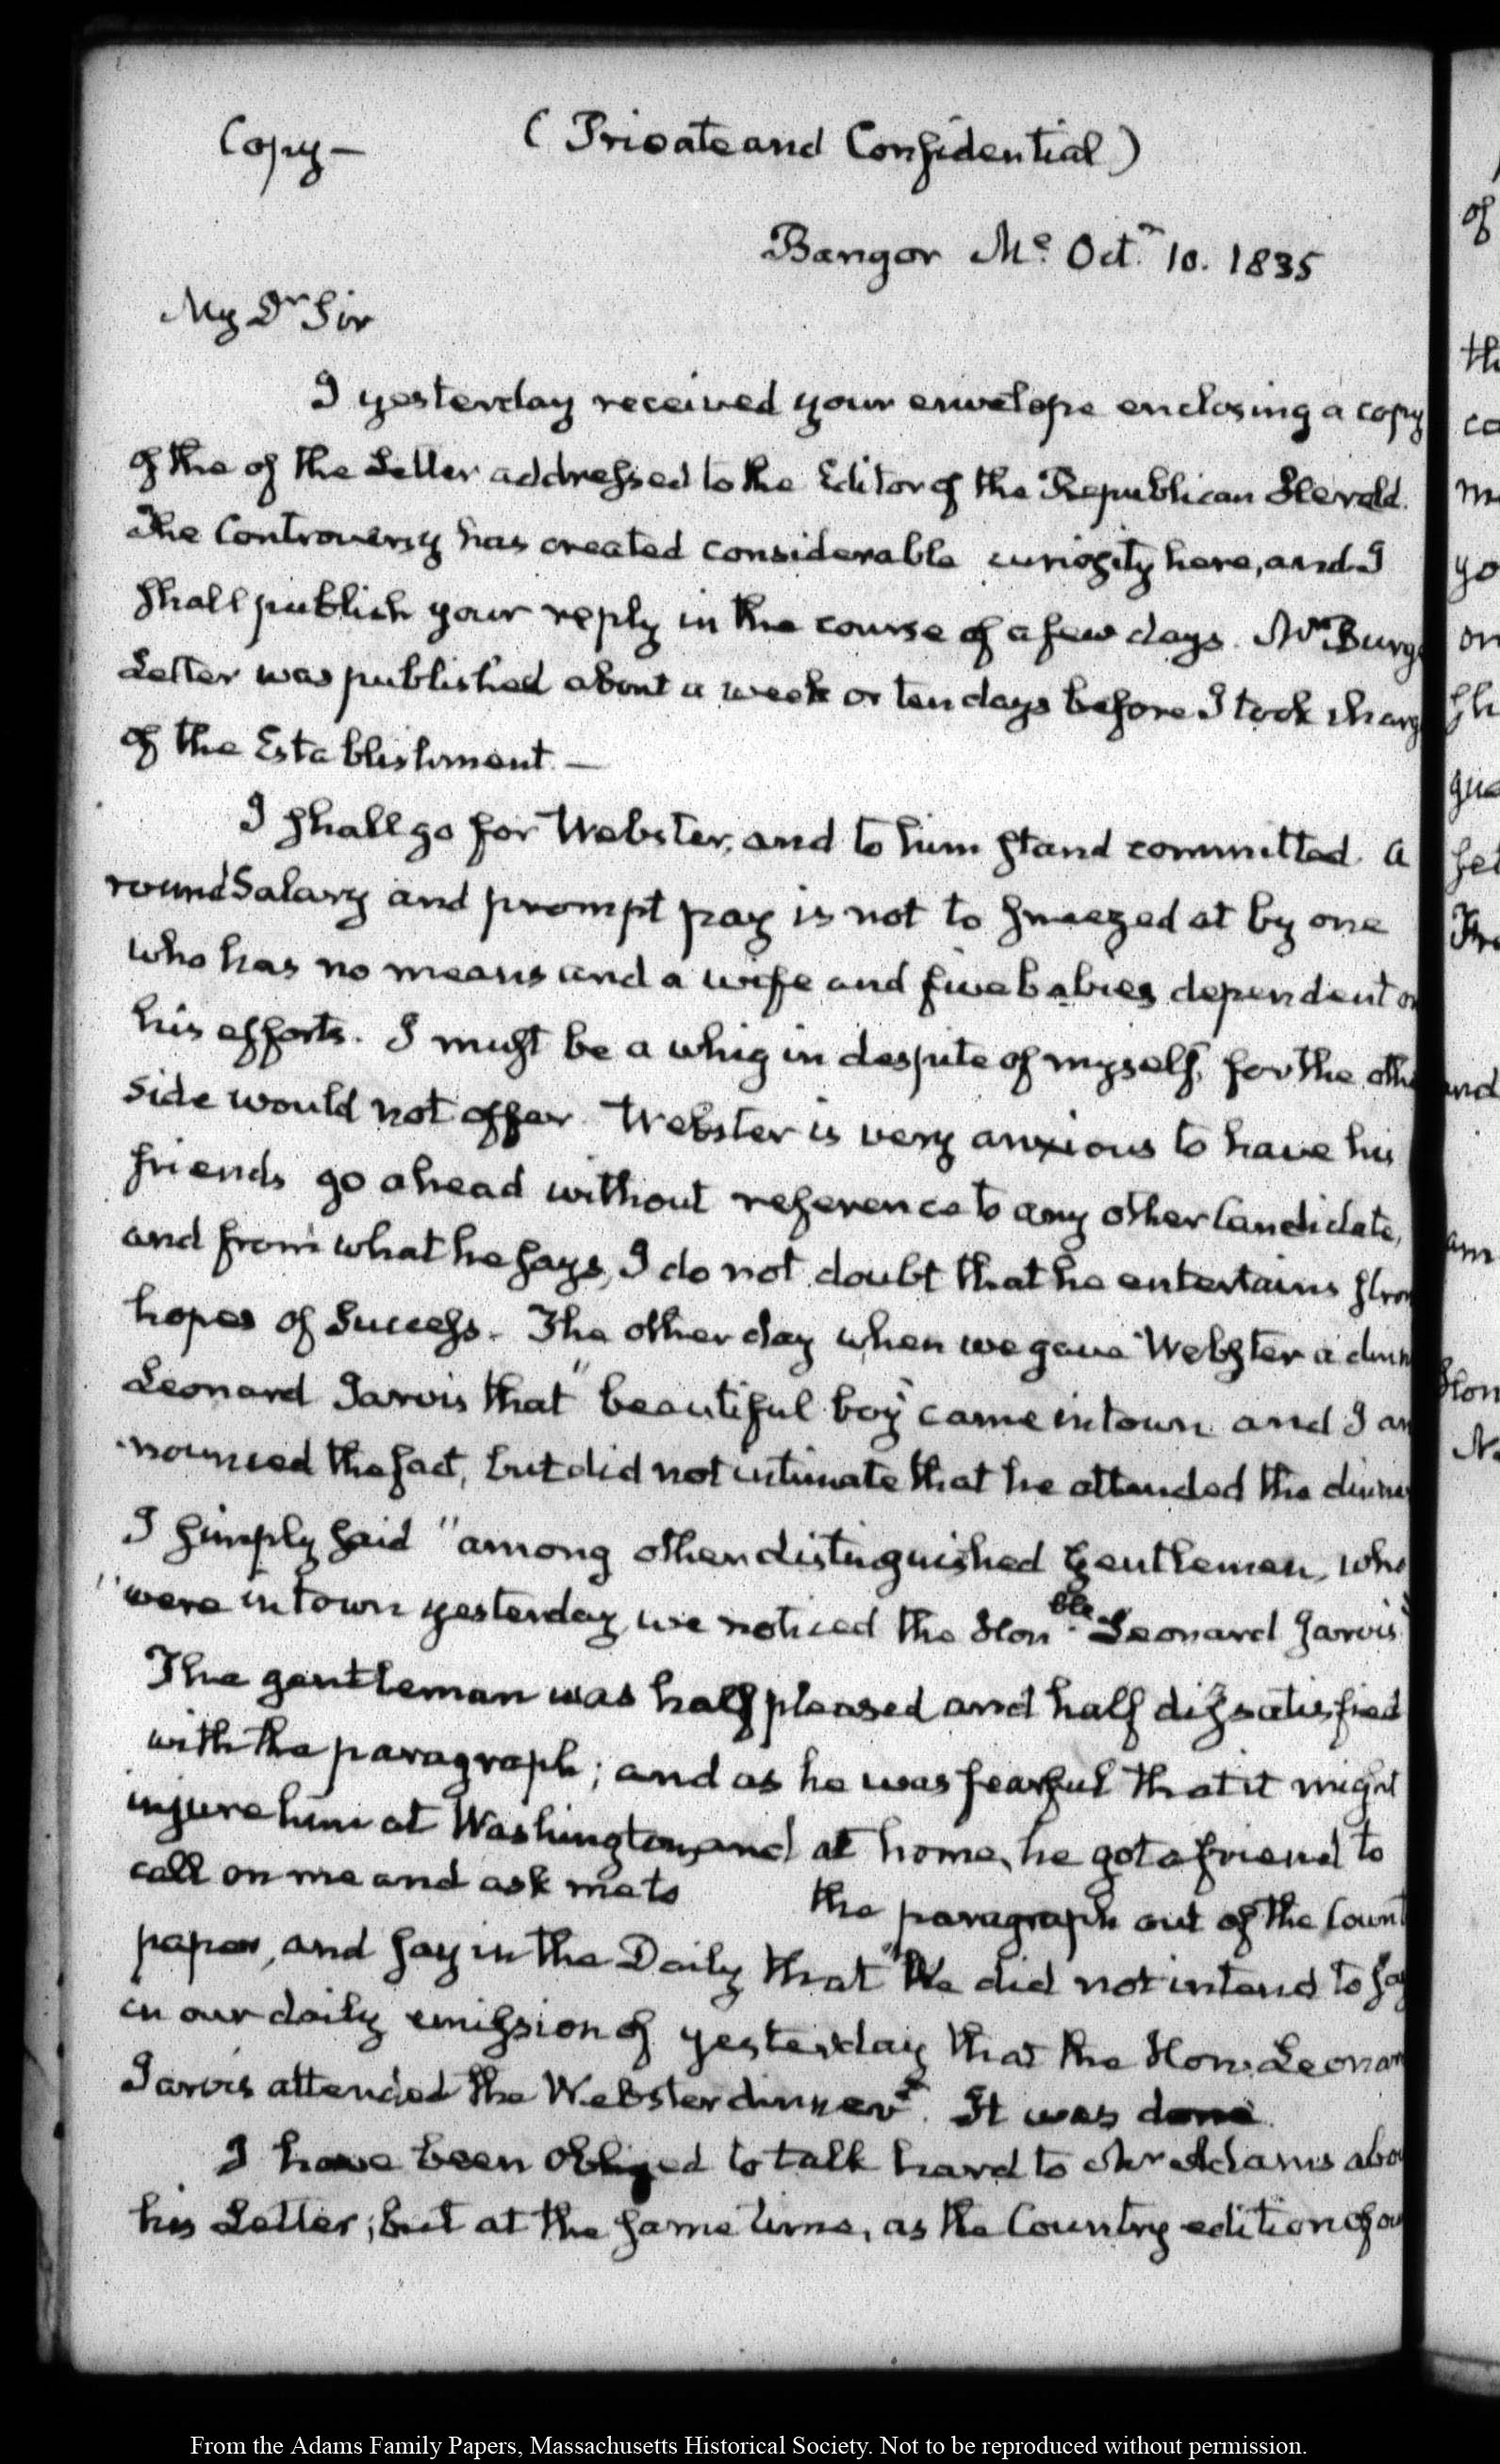 Copy — (Private and Confidential)
Bangor Me. Octr. 10. 1835
My Dr Sir
I yesterday received your envelope enclosing a copy
of the of the Letter addressed to the Editor of the Republican Herald.
The Controversy has created considerable curiosity here, and I
shall publish your reply in the course of a few days. Mr Burge
Letter was published about a week or ten days before I took charg
of the Establishment. —
I shall go for Webster, and to him stand committed. A
round Salary and prompt pay is not to sneezed at by one
who has no means and a wife and five babies dependent on
his efforts. I must be a whig in despite of myself, for the othe
side would not offer. Webster is very anxious to have his
friends go ahead without reference to any other Candidate,
and from what he says, I do not doubt that he entertains stron
hopes of Success. The other day when we gave Webster a dinn
Leonard Jarvis that "beautiful boy" came in town and I an
-nounced the fact, but did not intimate that he attended the dinne
I simply said "among other distinguished Gentlemen, who
"were in town yesterday, we noticed the Honble. Leonard Jarvis"
The gentleman was half pleased and half dissatisfied
with the paragraph; and as he was fearful that it might
injure him at Washington, and at home, he got a friend to
call on me and ask me to the paragraph out of the Count
paper, and say in the Daily that "We did not intend to say
in our daily emission of yesterday that the Hon. Leonar
Jarvis attended the Webster dinner". It was done.
I have been Obliged to talk hard to Mr Adams abou
his Letter; but at the same time, as the Country edition of ou
From the Adams Family Papers, Massachusetts Historical Society. Not to be reproduced without permission.